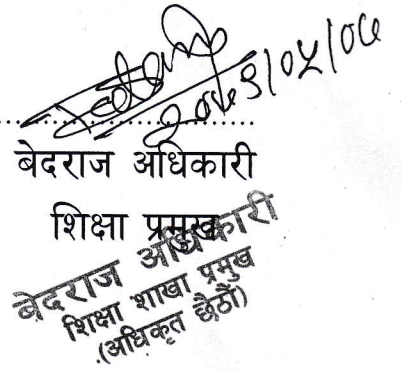 बेदराज अधिकारी
शिक्षा प्रमुख
बेदराज अधिकारी
शिक्षा शाखा प्रमुख
(अधिकृत छैठौं)